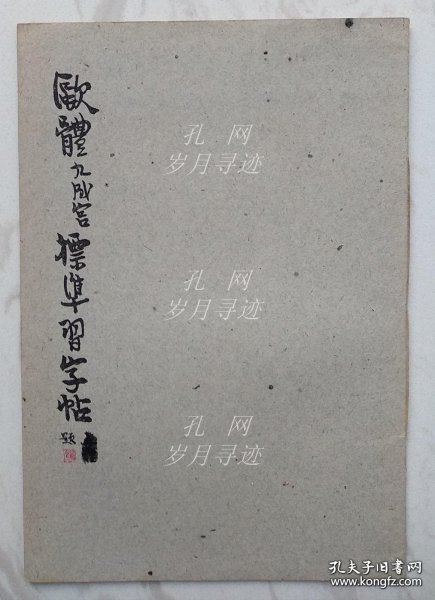 歐體九成宮標準習字帖
題
孔 网
岁月寻迹
孔 网
岁月寻迹
孔 网
岁月寻迹
孔夫子旧书网
www.kongfz.com